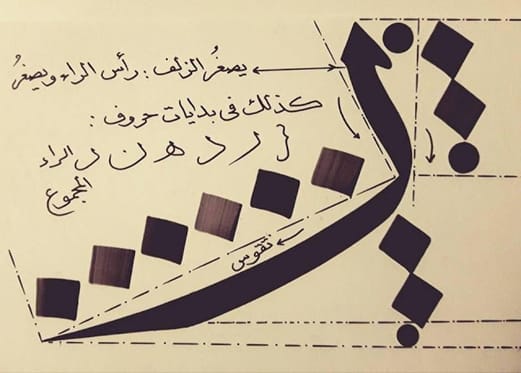 يصغرُ الزلف : رأس الراء ويصغرُ
كذلك في بدايات حروف :
{ ر د هـ ن ر الراء
المجموع
تقوس